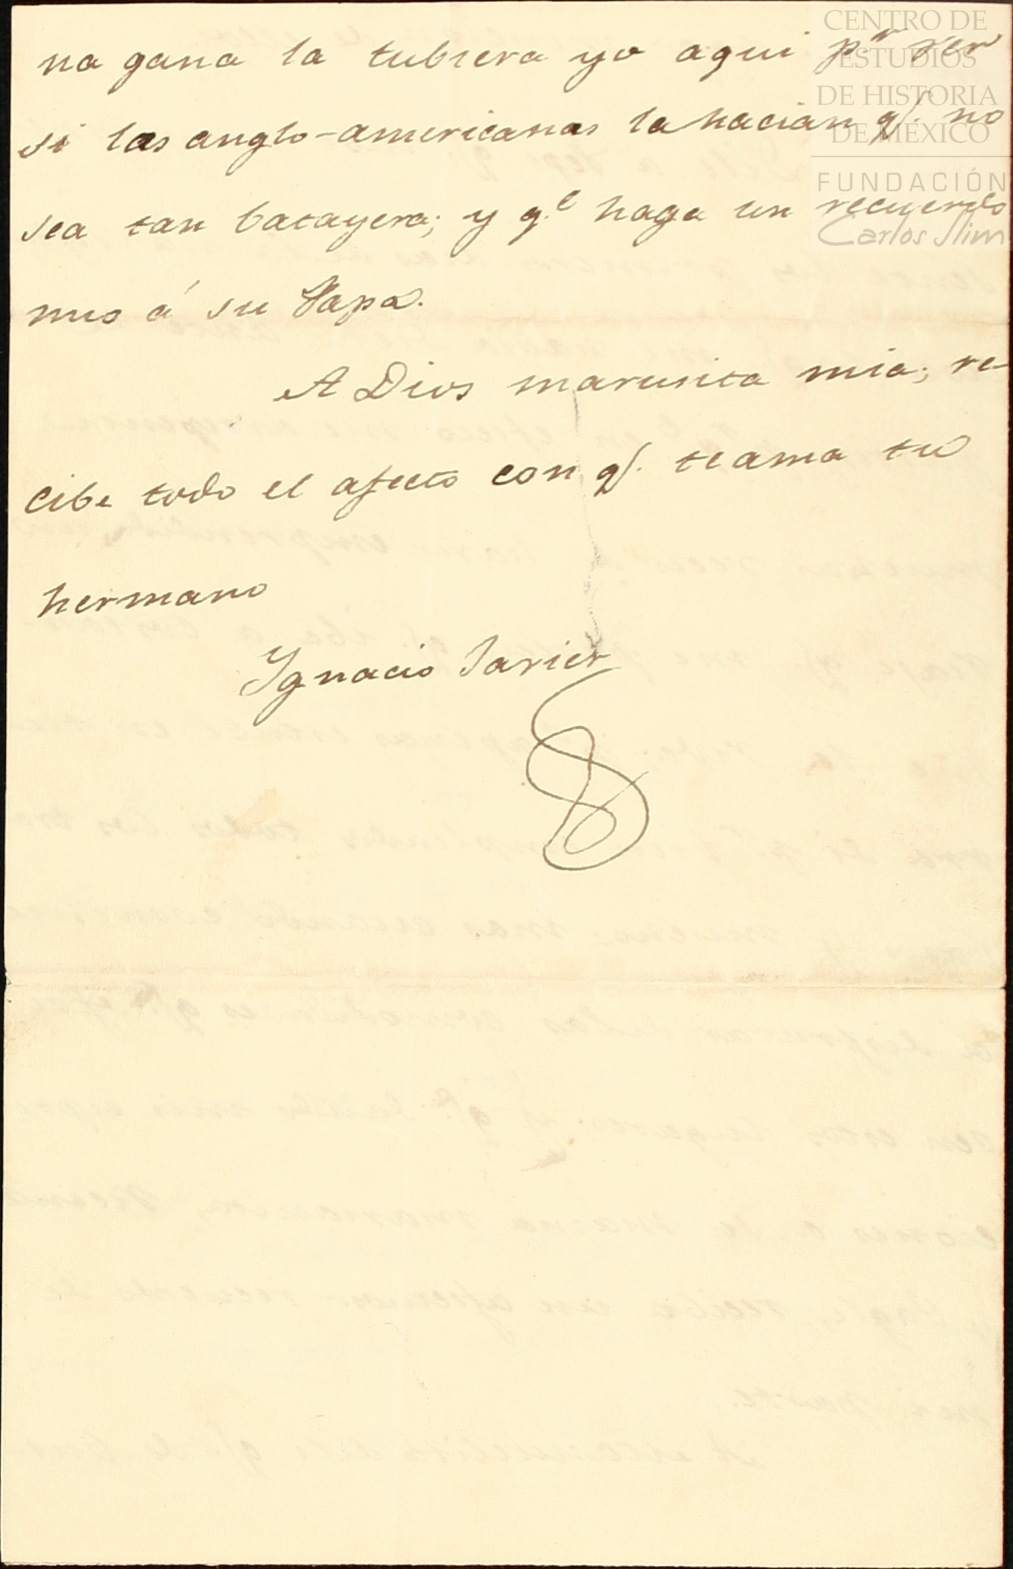 na gana la tubiera yo aqui p.r ver
si las anglo-americanas la hacian q/. no
sea tan batayera; y q.e haga un recuerdo
mio á su Papa.
A Dios marusita mia; re-
cibe todo el afecto con q/. te ama tu
hermano
Ignacio Javier
CENTRO DE
ESTUDIOS
DE HISTORIA
DE MÉXICO
FUNDACIÓN
Carlos Slim